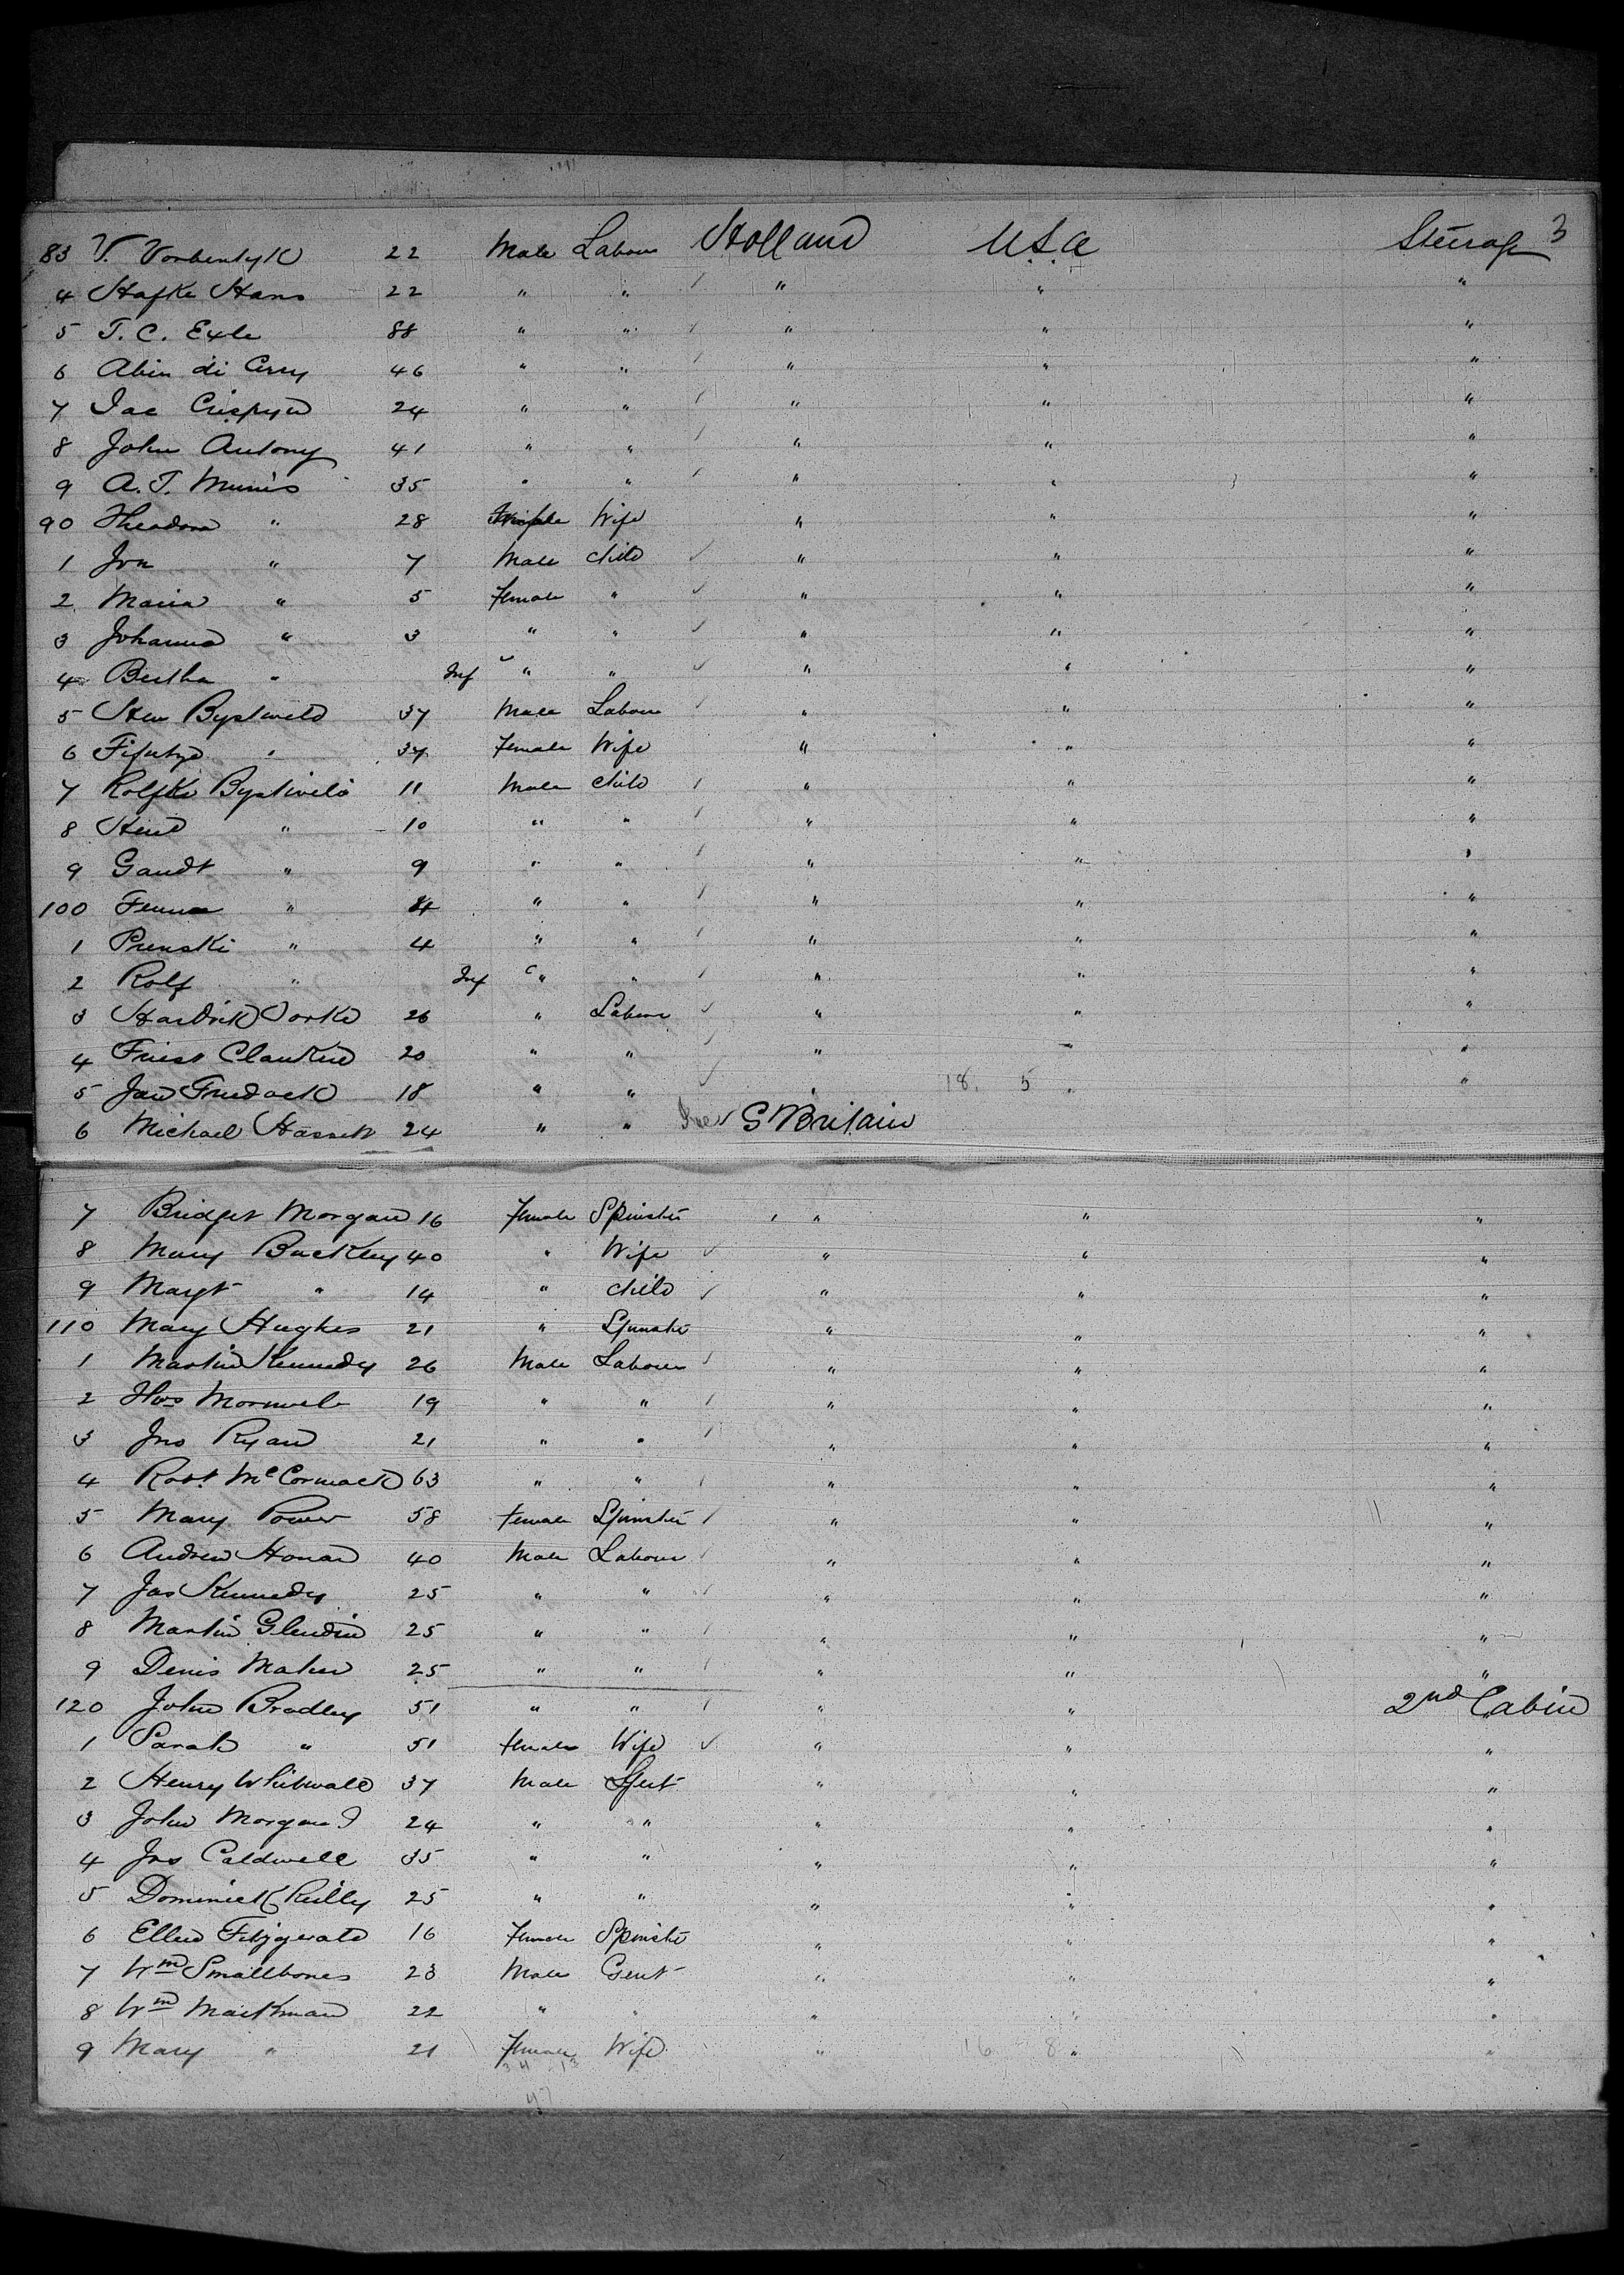 3
83 V. Vorbentyk 22 Male Labour Holland U.S.a Steerage
4 Hafke Hans 22 " " " " "
5 T. C. Exle 88 " " " " "
6 Abin di Cruy 46 " " " " "
7 Jac Crispyn 24 " " " " "
8 John Antony 41 " " " " "
9 A. T. Munis 35 " " " " "
90 Theodora " 28 Female Wife " " "
1 Jon " 7 Male child " " "
2 Maria " 5 Female " " " "
3 Johanna " 3 " " " " "
4 Bertha " Inf " " " " "
5 Hen Bystweld 37 Male Labour " " "
6 " 37 Female Wife " " "
7 Rolfke Bystweld 11 Male child " " "
8 Hend " 10 " " " " "
9 Gandt " 9 " " " " "
100 Fenna " 4 " " " " "
1 Prenski " 4 " " " " "
2 Rolf " Inf " " " " "
3 Hardrik Vorke 26 " Labour " " "
4 Friest Clanken 20 " " " " "
5 Jan Fredack 18 " " " 18. 5 " "
6 Michael Hassett 24 " " Ire G Britain
7 Bridget Morgan 16 Female Spinster " " "
8 Mary Buckley 40 " Wife " " "
9 Margt " 14 " child " " "
110 Mary Hughes 21 " Spinster " " "
1 Martin Kennedy 26 Male Labour " " "
2 Thos Mormele 19 " " " " "
3 Jno Ryan 21 " " " " "
4 Robt. McCormack 63 " " " " "
5 Mary Power 58 female Spinster " " "
6 Andrew Honan 40 Male Labour " " "
7 Jas Kennedy 25 " " " " "
8 Martin Glendin 25 " " " " "
9 Denis Maher 25 " " " " "
120 John Bradley 51 " " " " 2nd Cabin
1 Sarah " 51 female Wife " " "
2 Henry Whitwall 37 Male Gent " " "
3 John Morgan 24 " " " " "
4 Jas Caldwell 35 " " " " "
5 Dominick Reilly 25 " " " " "
6 Ellen Fitzgerald 16 Female Spinster " " "
7 Wm Smallbones 23 Male Gent " " "
8 Wm Markman 22 " " " " "
9 Mary " 21 Female Wife " 16 8 " "
34 13
47